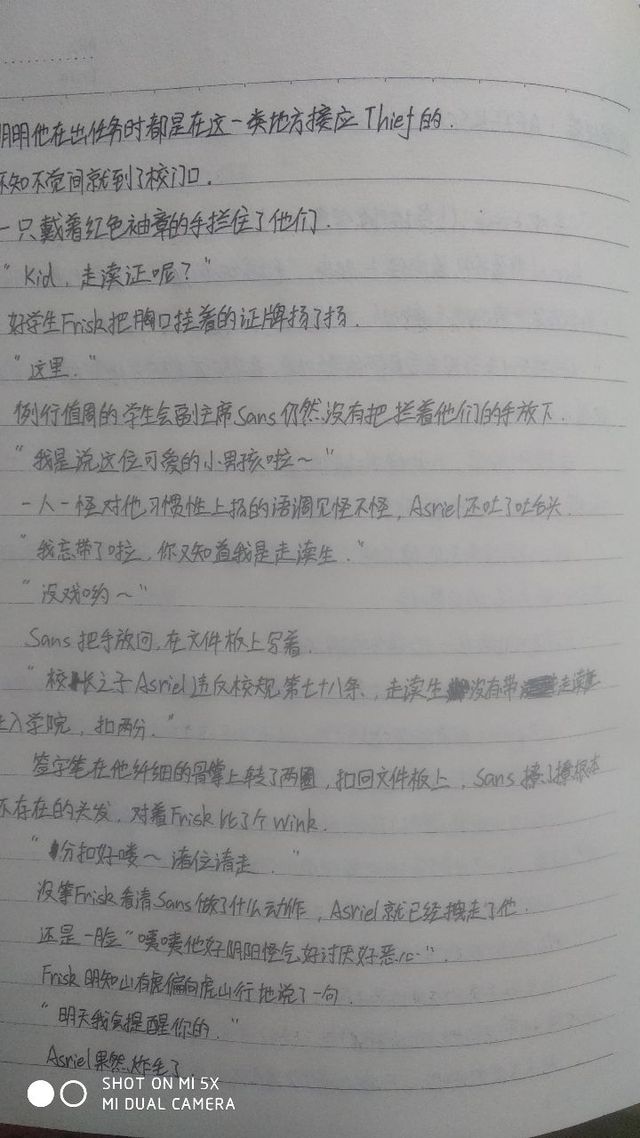 明明他在出任务时都是在这一类地方接应 Thief 的.
不知不觉间就到了校门口.
一只戴着红色袖章的手拦住了他们.
"Kid, 走读证呢?"
好学生Frisk把胸口挂着的证牌扬了扬.
"这里."
例行值周的学生会副主席Sans仍然没有把拦着他们的手放下.
"我是说这位可爱的小男孩啦~"
一人一怪对他习惯性上扬的语调见怪不怪, Asriel还吐了吐舌头.
"我忘带了啦, 你又知道我是走读生."
"没戏哟~"
Sans把手放回, 在文件板上写着.
"校长之子Asriel违反校规第七十八条, 走读生没有带走读证
进入学院, 扣两分."
签字笔在他纤细的骨掌上转了两圈, 扣回文件板上, Sans撩了撩根本
不存在的头发, 对着Frisk比了个wink.
"分扣好喽~ 请位请走."
没等Frisk看清Sans做了什么动作, Asriel就已经拽走了他.
还是一脸"噗噗他好阴阳怪气好讨厌好恶心".
Frisk明知山有虎偏向虎山行地说了一句.
"明天我会提醒你的."
Asriel果然炸毛了.
SHOT ON MI 5X
MI DUAL CAMERA